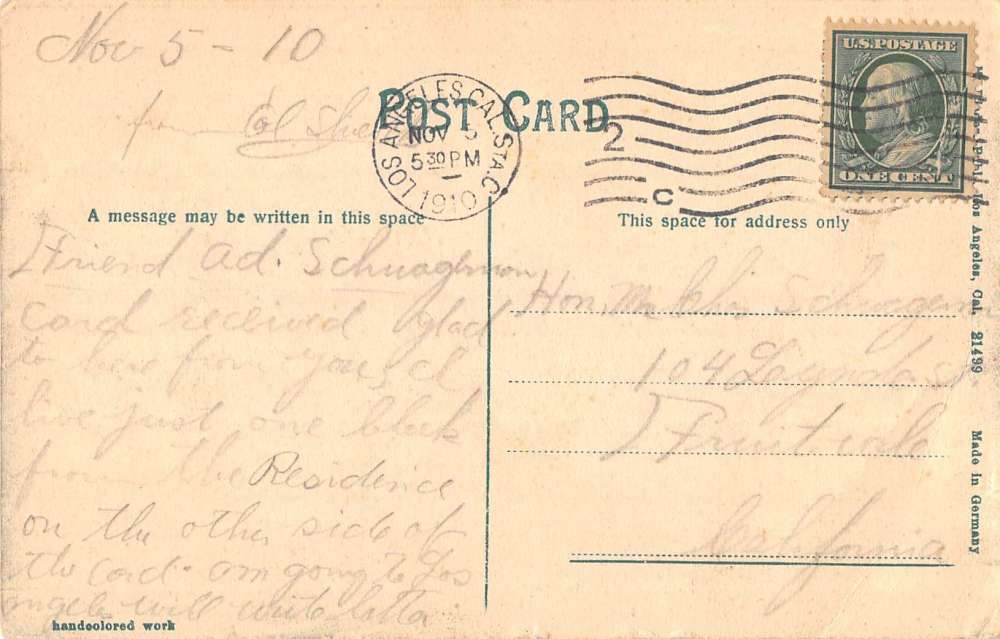 Nov 5 - 10
from Col
POST CARD
LOS ANGELES, CAL. STA. C.
NOV 5
5 30 PM
1910
2
C
U.S. POSTAGE
ONE CENT
A message may be written in this space
This space for address only
Friend Ad. Schwagerman
card received glad
to here from you, I
live just one block
from the Residence
on the other side of
the card. am going to Los
angeles will write latter
handcolored work
Hon. Schwagerman
104 St.
Fruitvale
California
Los Angeles, Cal. 21499 Made in Germany